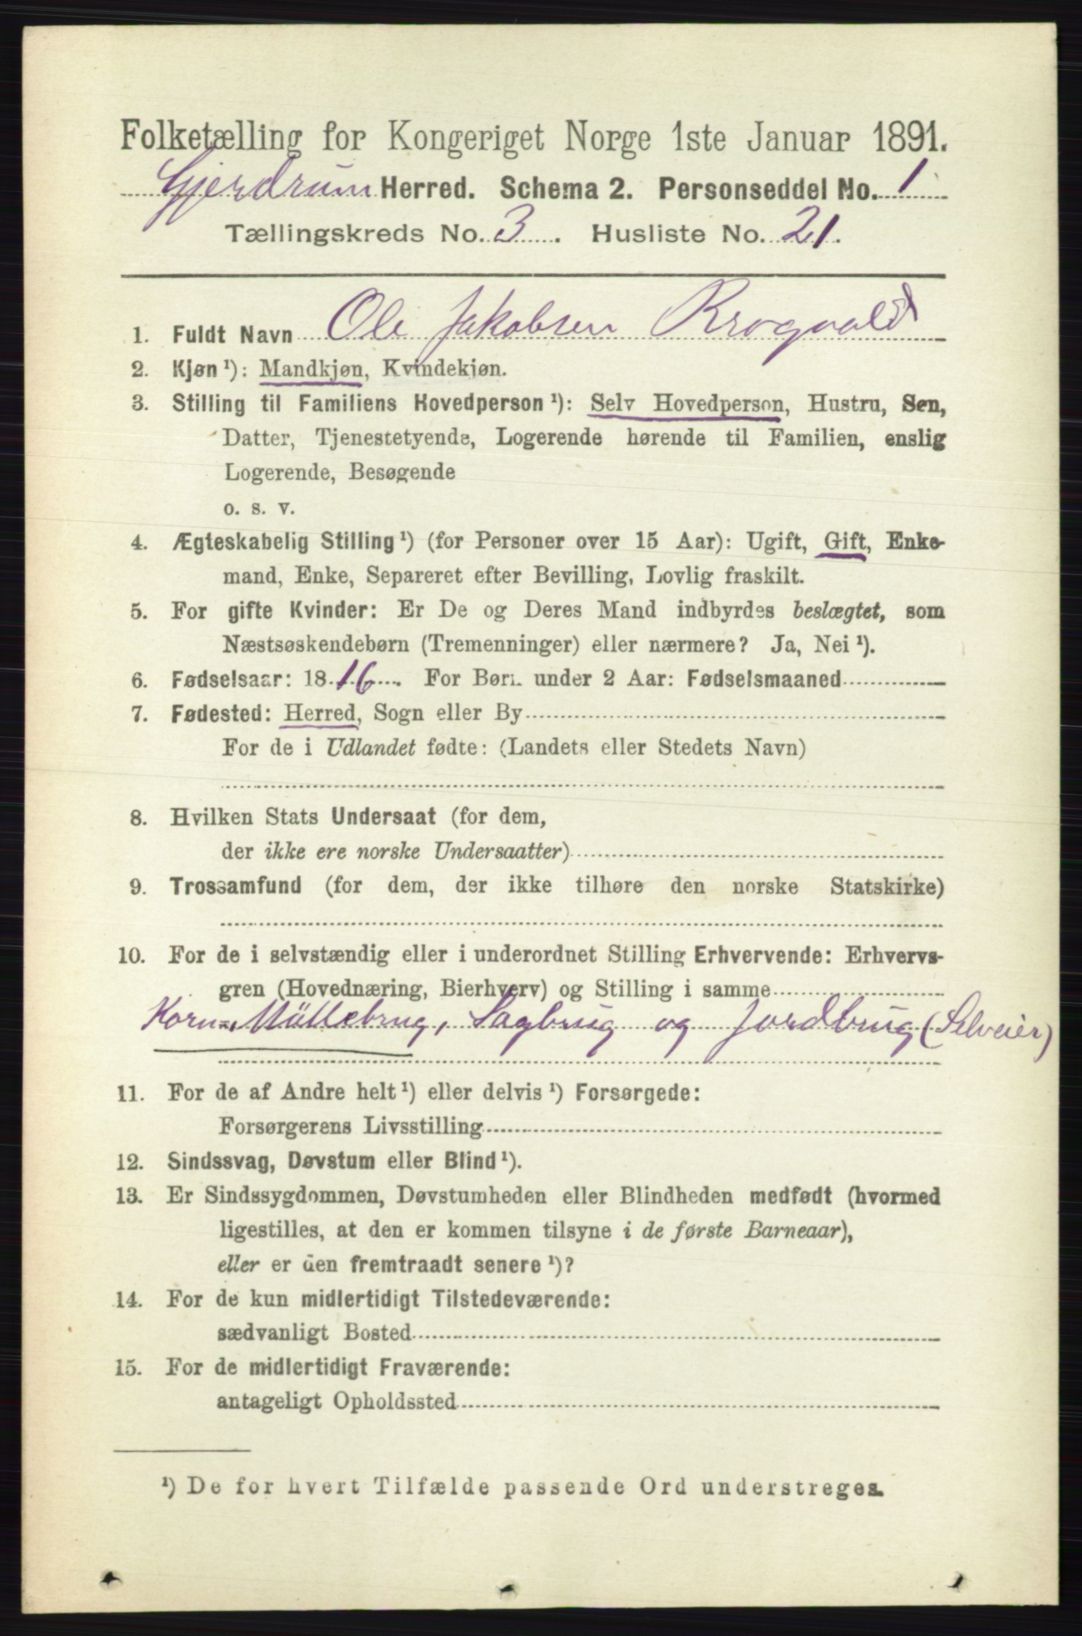 Folketælling for Kongeriget Norge 1ste Januar 1891.
Gjerdrum Herred. Schema 2. Personseddel No. 1
Tællingskreds No. 3. Husliste No. 21.
1. Fuldt Navn Ole Jakobsen
2. Kjøn ¹): Mandkjøn, Kvindekjøn.
3. Stilling til Familiens Hovedperson ¹): Selv Hovedperson, Hustru, Søn,
Datter, Tjenestetyende, Logerende hørende til Familien, enslig
Logerende, Besøgende
o. s. v.
4. Ægteskabelig Stilling ¹) (for Personer over 15 Aar): Ugift, Gift, Enke-
mand, Enke, Separeret efter Bevilling, Lovlig fraskilt.
5. For gifte Kvinder: Er De og Deres Mand indbyrdes beslægtet, som
Næstsøskendebørn (Tremenninger) eller nærmere? Ja, Nei ¹).
6. Fødselsaar: 1816. For Børn under 2 Aar: Fødselsmaaned
7. Fødested: Herred, Sogn eller By
For de i Udlandet fødte: (Landets eller Stedets Navn)
8. Hvilken Stats Undersaat (for dem,
der ikke ere norske Undersaatter)
9. Trossamfund (for dem, der ikke tilhøre den norske Statskirke)
10. For de i selvstændig eller i underordnet Stilling Erhvervende: Erhvervs-
gren (Hovednæring, Bierhverv) og Stilling i samme
Korn-Möllebrug, Sagbrug og Jordbrug (Selveier)
11. For de af Andre helt ¹) eller delvis ¹) Forsørgede:
Forsørgerens Livsstilling
12. Sindssvag, Døvstum eller Blind ¹).
13. Er Sindssygdommen, Døvstumheden eller Blindheden medfødt (hvormed
ligestilles, at den er kommen tilsyne i de første Barneaar),
eller er den fremtraadt senere ¹)?
14. For de kun midlertidigt Tilstedeværende:
sædvanligt Bosted
15. For de midlertidigt Fraværende:
antageligt Opholdssted
¹) De for hvert Tilfælde passende Ord understreges.